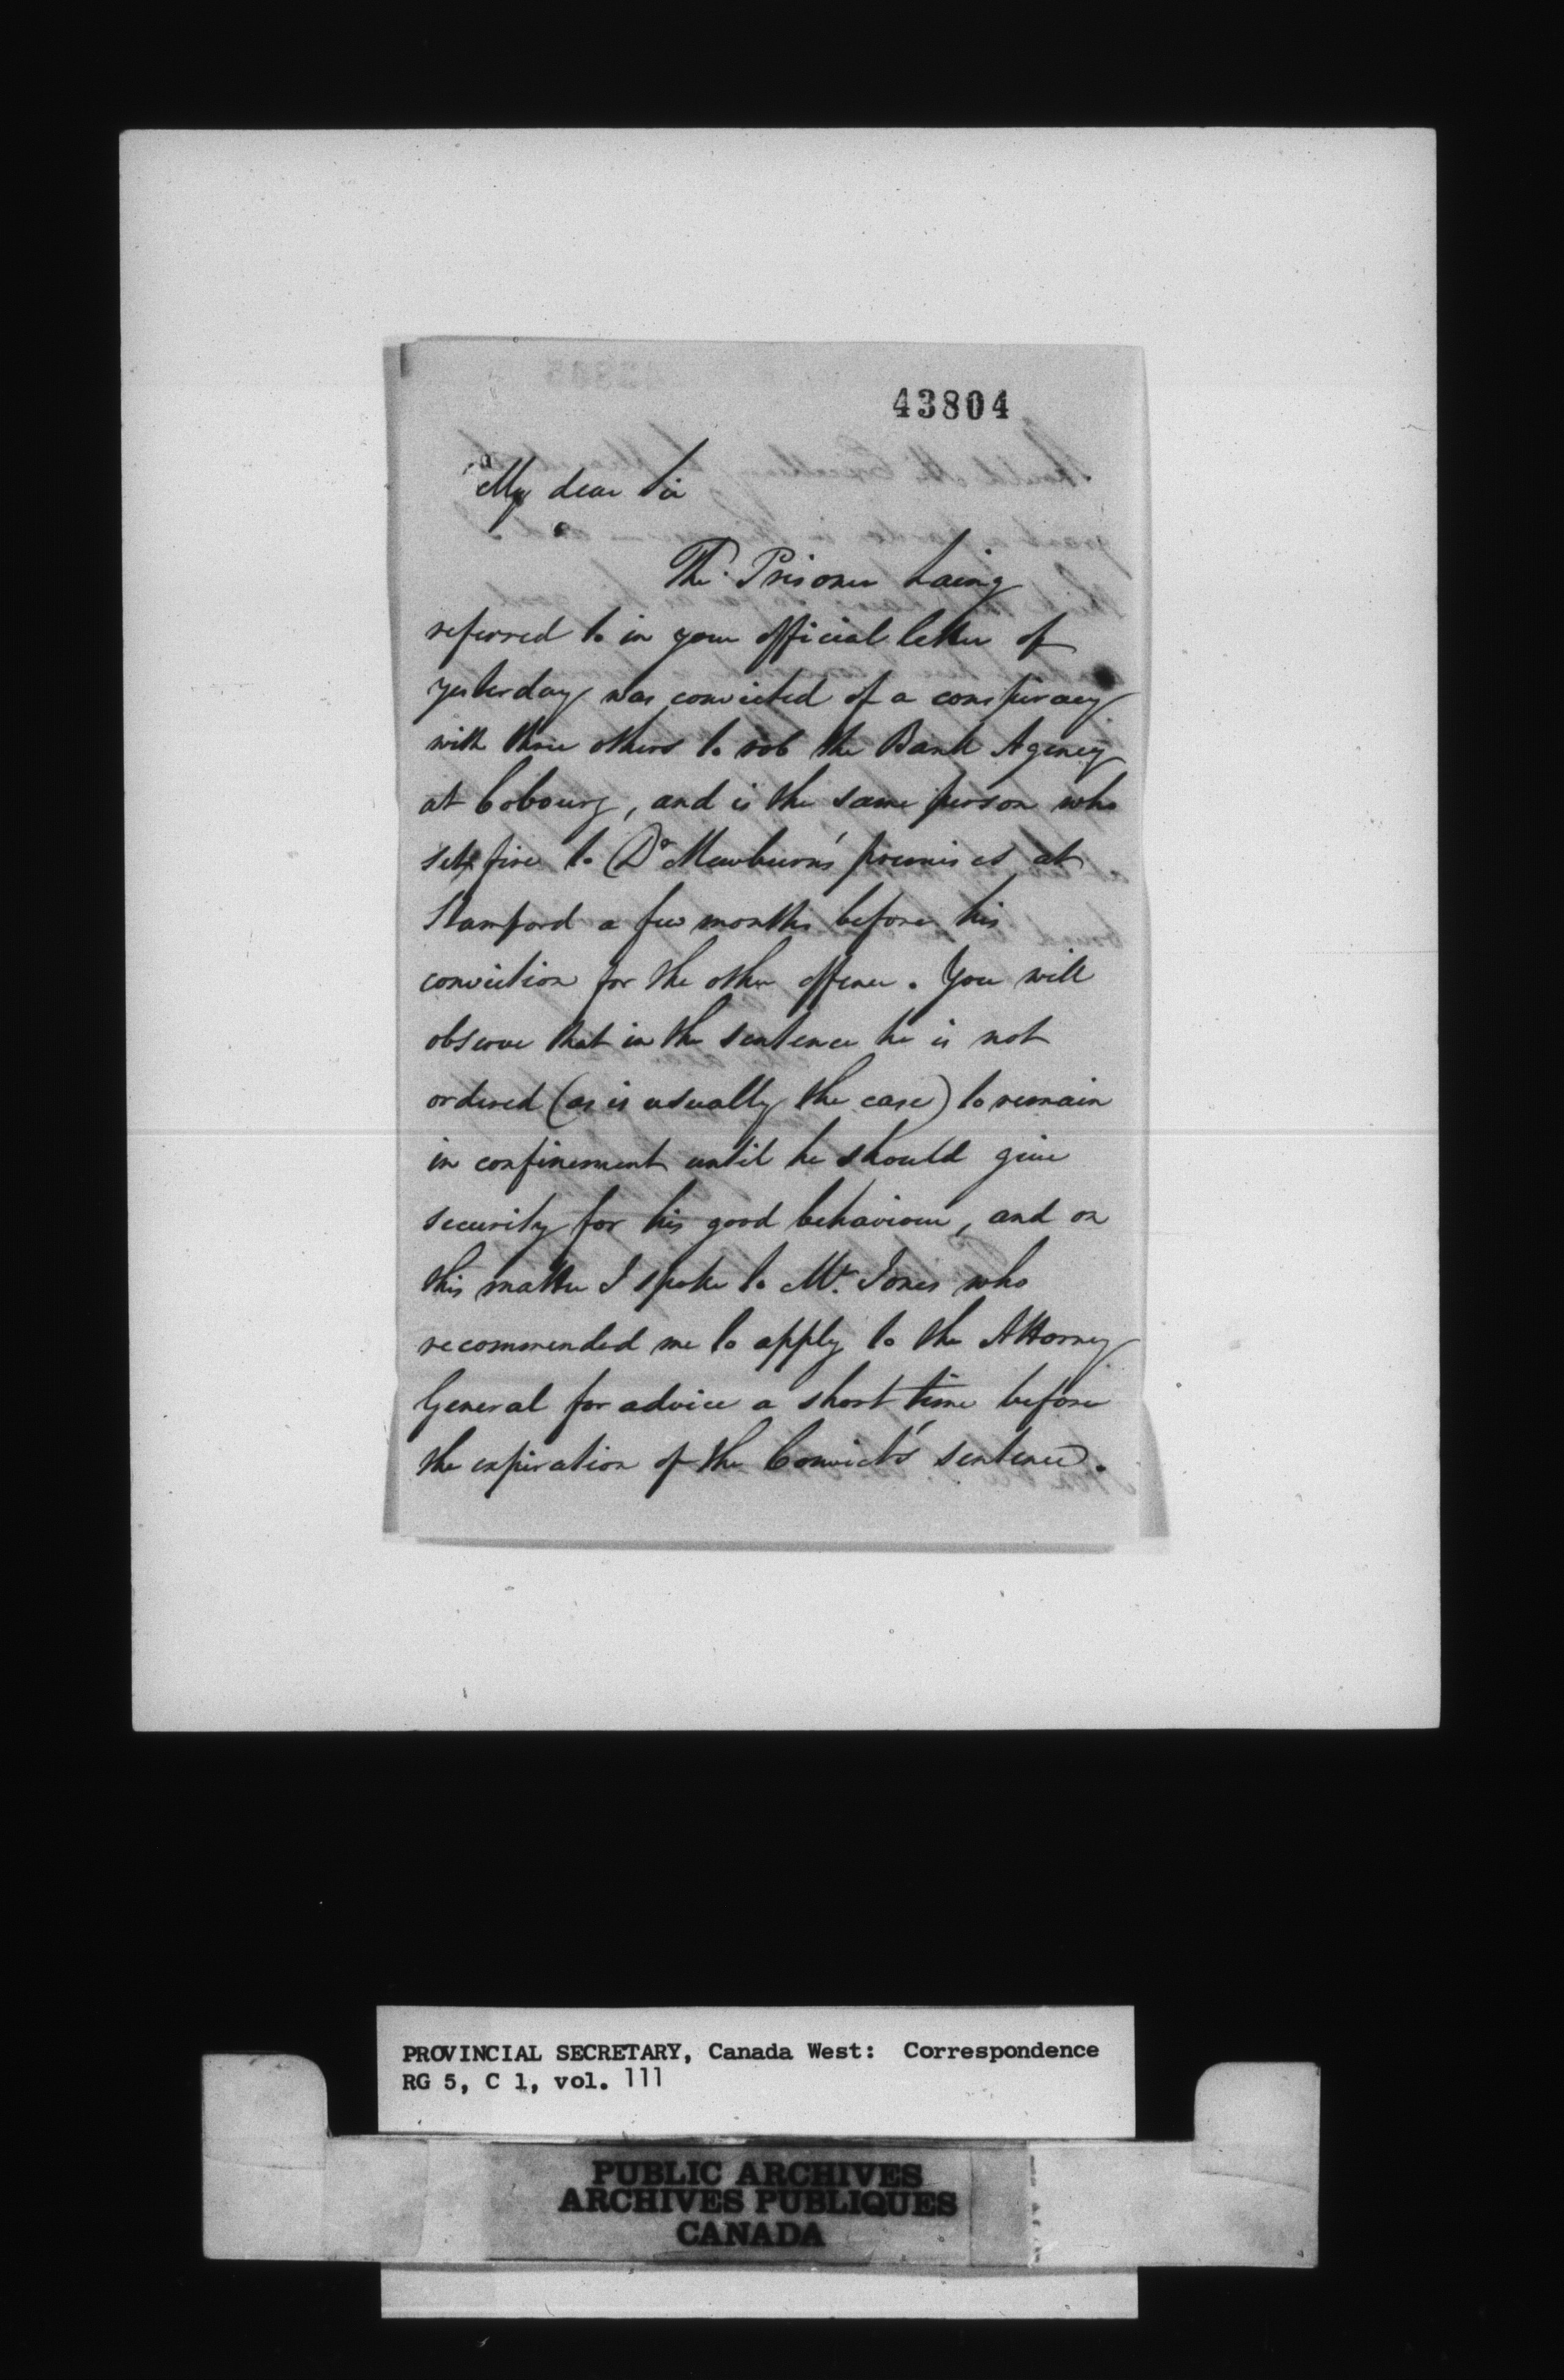 43804
My dear Sir
The Prisoner Laing
referred to in your official letter of
yesterday was convicted of a conspiracy
with three others to rob the Bank Agency
at Cobourg, and is the same person who
set fire to Dr Mewburn's premises at
Stamford a few months before his
conviction for the other offence. You will
observe that in the sentence he is not
ordered (as is usually the case) to remain
in confinement until he should give
security for his good behaviour, and on
this matter I spoke to Mr. Jones who
recommended me to apply to the Attorney
General for advice a short time before
the expiration of the Convict's sentence.
PROVINCIAL SECRETARY, Canada West: Correspondence
RG 5, C 1, vol. 111
PUBLIC ARCHIVES
ARCHIVES PUBLIQUES
CANADA